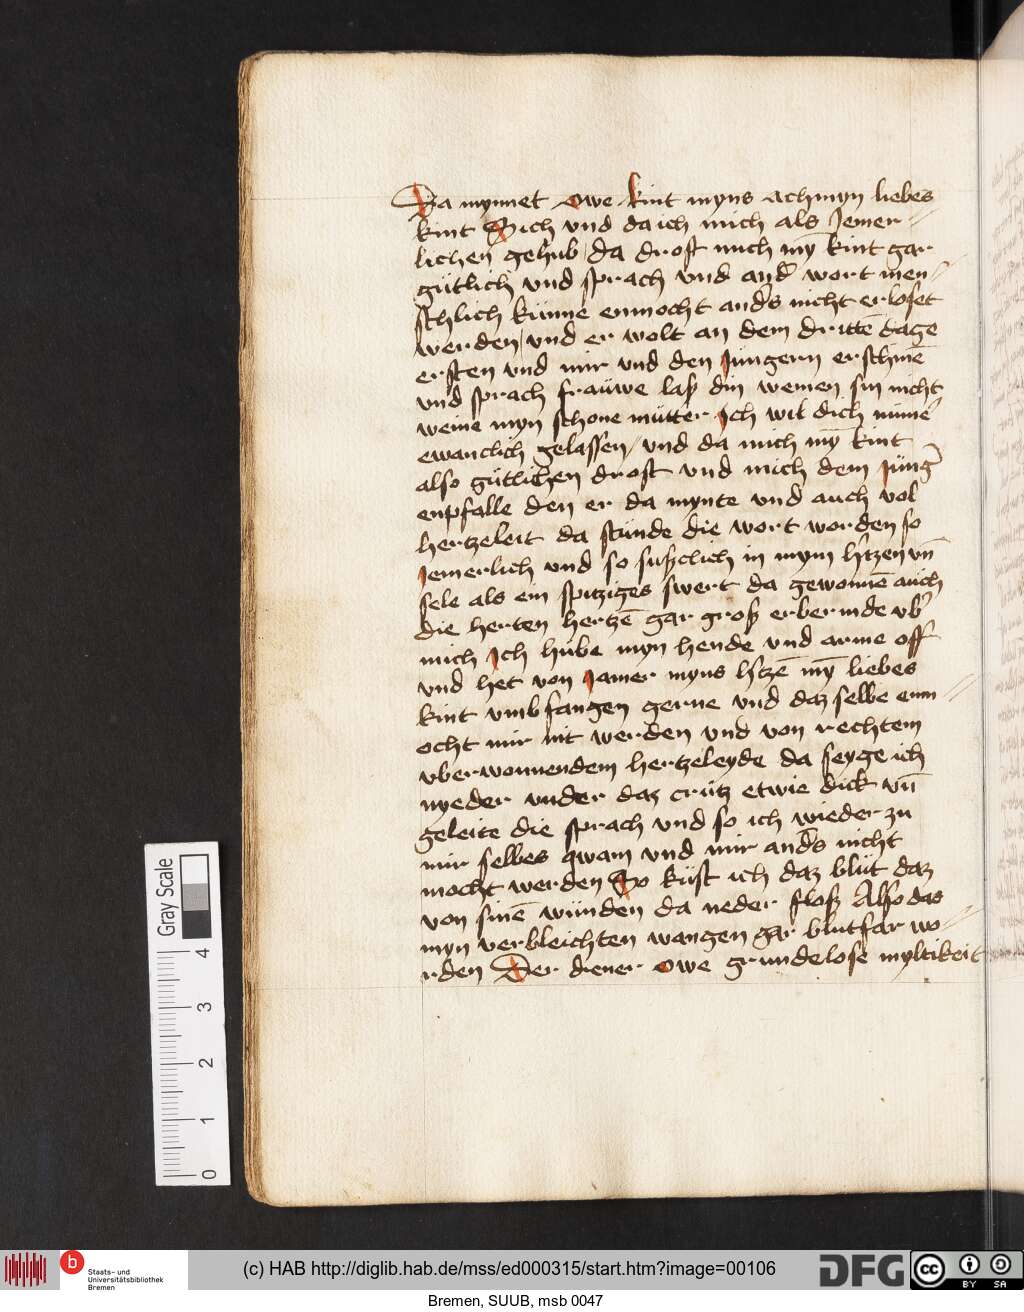 Da mynnet owe kint myns ach myn liebes
kint Sich vnd da ich mich als Jemer-
lichen gehub / da drost mich mȳ kint gar
gütlich vnd sprach vnd and̕ wort men-
schlich künne enmocht and̕s nicht erloset
werden / vnd er wolt an dem drittē dage
ersten vnd mir vnd den Jüngern erschinē
vnd sprach frauwe laß din weinen sin nicht
weine myn schone mutter Ich wil dich nüm̄e̕
ewanclich gelassen / vnd da mich mȳ kint
also gütlichen drost vnd mich dem Jüng̕
enpfalle den er da mynte vnd auch vol
hertzeleit da stünde die wort worden so
Jemerlich vnd so sußclich in mym h̕tzen vn̄
sele als ein spitziges swert da gewonnē auch
die herten hertzē gar groß erbermde vb̕
mich Ich hübe myn hende vnd arme off
vnd het von Jamer myns h̕tzē mȳ liebes
kint vmbfangen gerne vnd daz selbe enm-
ocht mir nit werden vnd von rechtem
vberwonnendem hertzeleyde da seyge ich
nyeder vnder daz crütz etwie dick vn̄
geleite die sprach vnd so ich wieder zu
mir selbes qwam vnd mir and̕s nicht
mocht werden So küst ich daz blüt daz
von sinē wünden da neder floß Also das
myn verbleichten wangen gar blutfar wo-
rden Der diener owe grundelose myltikeit
Gray Scale
4
3
2
1
0
b
Staats- und
Universitätsbibliothek
Bremen
(c) HAB http://diglib.hab.de/mss/ed000315/start.htm?image=00106
DFG
cc
BY SA
Bremen, SUUB, msb 0047